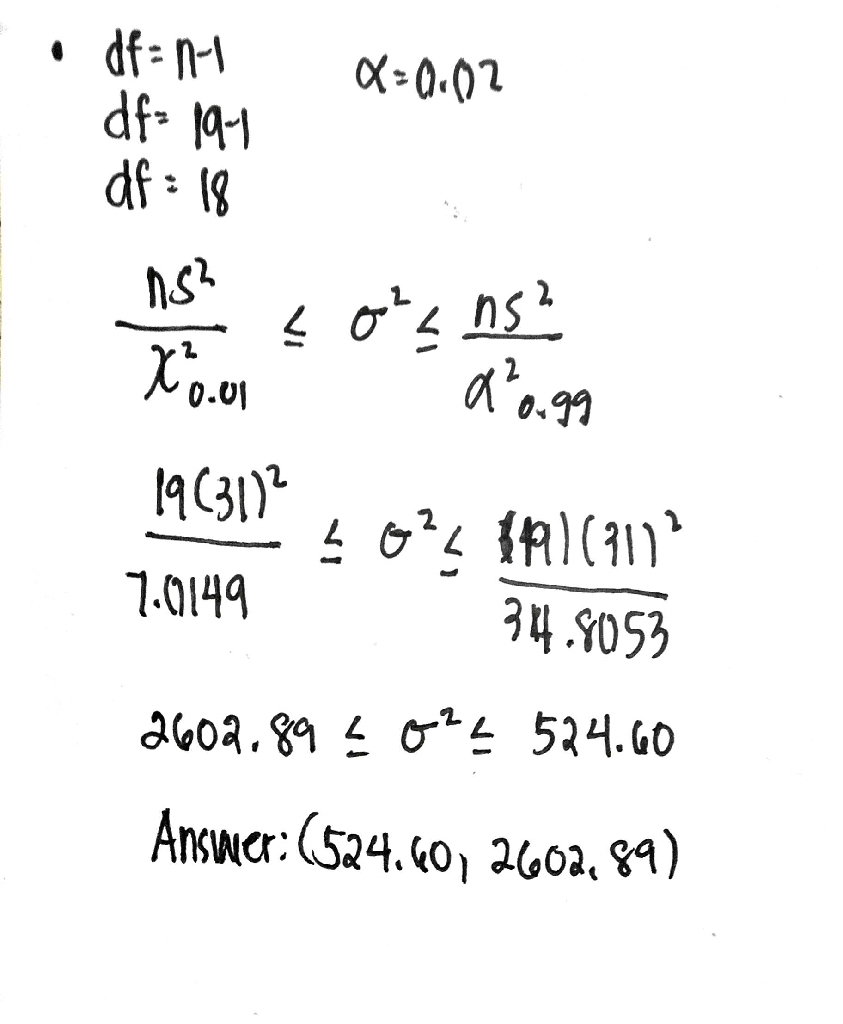 • df = n-1 α = 0.02
df = 19-1
df = 18
ns² / χ²0.01 ≤ σ² ≤ ns² / α²0.99
19(31)² / 7.0149 ≤ σ² ≤ (19)(31)² / 34.8053
2602.89 ≤ σ² ≤ 524.60
Answer: (524.60, 2602.89)